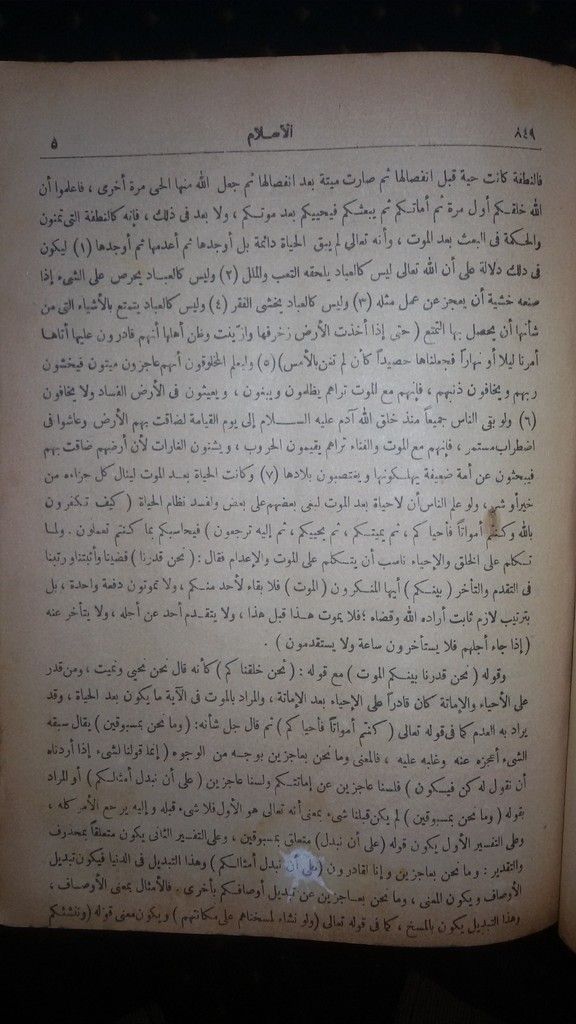 ٨٤٩ الإسلام ٥
فالنطفة كانت حية قبل انفصالها ثم صارت ميتة بعد انفصالها ثم جعل الله منها الحى مرة أخرى ، فاعلموا أن
الله خلقكم أول مرة ثم أماتكم ثم يبعثكم فيحييكم بعد موتكم ، ولا بعد فى ذلك ، فإنه كالنطفة التى تمنون
والحكمة فى البعث بعد الموت ، وأنه تعالى لم يبق الحياة دائمة بل أوجدها ثم أعدمها ثم أوجدها (١) ليكون
فى ذلك دلالة على أن الله تعالى ليس كالعباد يلحقه التعب والملل (٢) وليس كالعباد يحرص على الشىء إذا
صنعه خشية أن يعجز عن عمل مثله (٣) وليس كالعباد يخشى الفقر (٤) وليس كالعباد يتمتع بالأشياء التى من
شأنها أن يحصل بها التمتع ( حتى إذا أخذت الأرض زخرفها وازينت وظن أهلها أنهم قادرون عليها أتاها
أمرنا ليلا أو نهاراً فجعلناها حصيداً كأن لم تغن بالأمس) (٥) وليعلم المخلوقون أنهم عاجزون ميتون فيخشون
ربهم و يخافون ذنبهم ، فإنهم مع الموت تراهم يظلمون و يبغون ، و يعيثون فى الأرض الفساد ولا يخافون
(٦) ولو بقى الناس جميعاً منذ خلق الله آدم عليه الســـلام إلى يوم القيامة لضاقت بهم الأرض وعاشوا فى
اضطراب مستمر ، فإنهم مع الموت والفناء تراهم يقيمون الحروب ، و يشنون الغارات لأن أرضهم ضاقت بهم
فيبحثون عن أمة ضعيفة يهلكونها و يغتصبون بلادها (٧) وكانت الحياة بعد الموت لينال كل جزاءه من
خير أو شر ، ولو علم الناس أن لا حياة بعد الموت لبغى بعضهم على بعض ولفسد نظام الحياة ( كيف تكفرون
بالله وكنتم أمواتاً فأحياكم ، ثم يميتكم ، ثم يحييكم ، ثم إليه ترجعون ) فيحاسبكم بما كنتم تعملون . ولما
تكلم على الخلق والإحياء ناسب أن يتكلم على الموت والإعدام فقال : ( نحن قدرنا ) قضينا وأثبتنا ورتبنا
فى التقدم والتأخر ( بينكم ) أيها المنكرون ( الموت ) فلا بقاء لأحد منكم ، ولا تموتون دفعة واحدة ، بل
بترتيب لازم ثابت أراده الله وقضاه ؛ فلا يموت هذا قبل هذا ، ولا يتقدم أحد عن أجله ، ولا يتأخر عنه
( إذا جاء أجلهم فلا يستأخرون ساعة ولا يستقدمون ) .
وقوله ( نحن قدرنا بينكم الموت ) مع قوله : ( نحن خلقناكم ) كأنه قال نحن نحيى ونميت ، ومن قدر
على الأحياء والإماتة كان قادراً على الإحياء بعد الإماتة ، والمراد بالموت فى الآية ما يكون بعد الحياة ، وقد
يراد به العدم كما فى قوله تعالى ( كنتم أمواتاً فأحياكم ) ثم قال جل شأنه: ( وما نحن بمسبوقين ) يقال سبقه
الشىء أعجزه عنه وغلبه عليه ، فالمعنى وما نحن بعاجزين بوجه من الوجوه ( إنما قولنا لشىء إذا أردناه
أن نقول له كن فيكون ) فلسنا عاجزين عن إماتتكم ولسنا عاجزين ( على أن نبدل أمثالكم ) أو المراد
بقوله ( وما نحن بمسبوقين ) لم يكن قبلنا شىء بمعنى أنه تعالى هو الأول فلا شىء قبله و إليه يرجع الأمر كله ،
وعلى التفسير الأول يكون قوله (على أن نبدل) متعلق بمسبوقين ، وعلى التفسير الثانى يكون متعلقاً بمحذوف
والتقدير : وما نحن بعاجزين و إنا لقادرون (على أن نبدل أمثالكم) وهذا التبديل فى الدنيا فيكون تبديل
الأوصاف و يكون المعنى ، وما نحن بعاجزين عن تبديل أوصافكم بأخرى . فالأمثال بمعنى الأوصاف ،
وهذا التبديل يكون بالمسخ ، كما فى قوله تعالى (ولو نشاء لمسخناهم على مكانتهم ) و يكون معنى قوله (وننشئكم